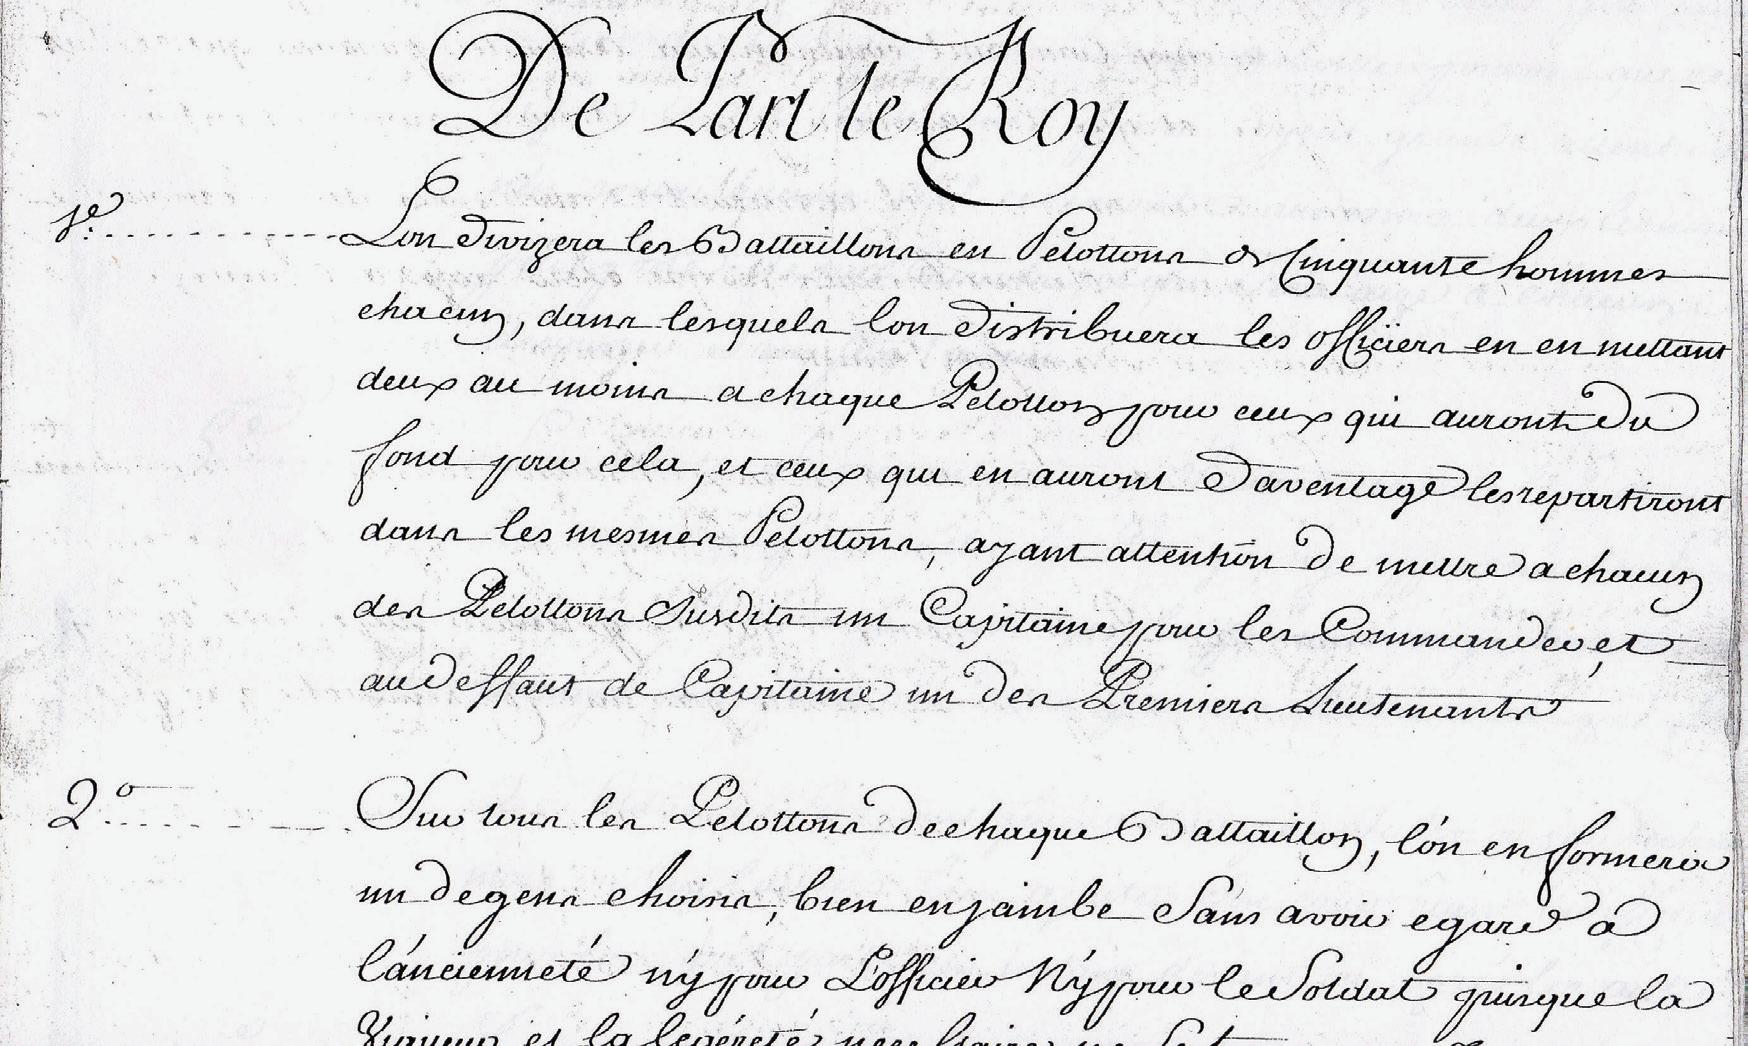 De Part le Roy
1.e Lon divizera les Battaillons en Pelottons de Cinquante hommes
chacun, dans lesquels lon distribuera les officiers en en mettant
deux au moins a chaque Pelotton pour ceux qui auront du
fond pour cela, et ceux qui en auront davantage les repartiront
dans les mesmes Pelottons, ayant attention de mettre a chacun
des Pelottons Susdits un Capitaine pour les Commander, et
au deffaut de Capitaine un des Premiers Lieutenants
2.o Sur tous les Pelottons de chaque Battaillon, l'on en formera
un de gens choisis, bien en jambe Sans avoir egard à
l'áncienneté n'y pour L'officier N'y pour le Soldat puisque la
Vigueur et la legéreté necessaire